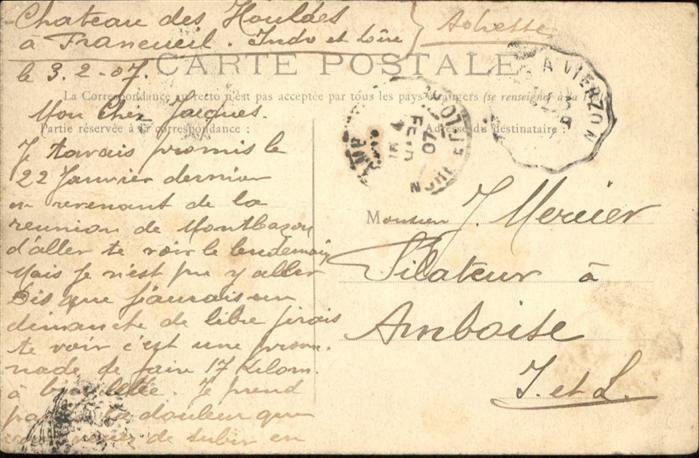 Chateau des Houldes
à Francueil. Indre et Loire } Adresse
le 3.2-07.
CARTE POSTALE
La Correspondance au recto n'est pas acceptée par tous les pays étrangers (se renseigner à la
Mon Cher Jacques.
Partie réservée à la correspondance : Adresse du destinataire :
Je t'avais promis le
22 Janvier dernier
en revenant de la
reunion de Montbazon
d'aller te voir le lendemain
Mais je n'est pu y aller
Dis que j'aurais un
dimanche de libre j'irais
te voir c'est une prome
nade de faire 17 Kilom.
à bicyclette. Je prend
part à la douleur que
vous de subir en
Monsieur J. Mercier
Filateur à
Amboise
I. et L.
A VIERZON